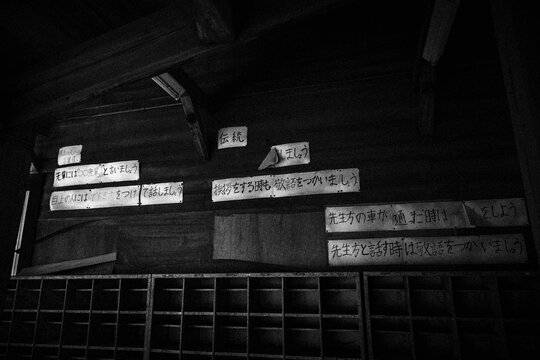 伝統
しましょう
先輩には○○先輩と言いましょう
目上の人には をつけて話しましょう
挨拶をする間も敬語をつかいましょう
先生方の車が通った時は をしよう
先生方と話す時は敬語をつかいましょう